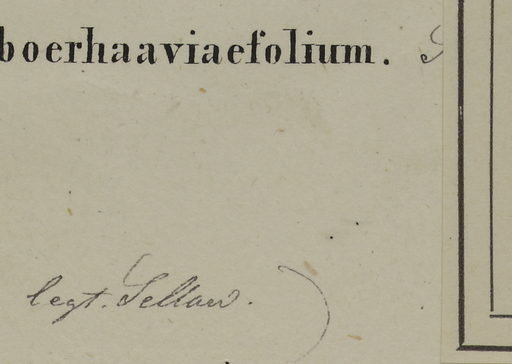 boerhaaviaefolium.
legt. Sellow.